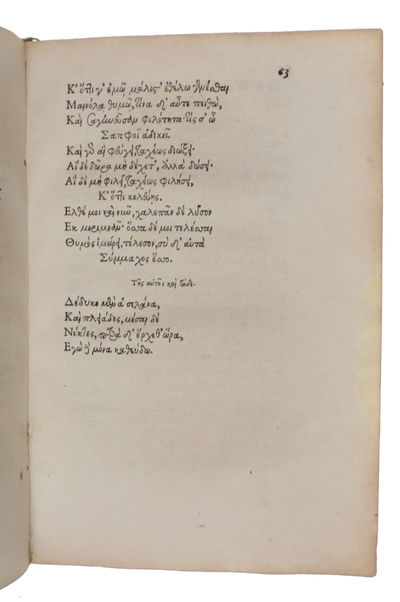 63
Κ' ὅττι γ' ἐμῷ μάλιστ' ἐθέλω γενέσθαι
Μαινόλᾳ θυμῷ, τίνα δ' αὖτε πείθω,
Καὶ σαγηνεύσω φιλότητα· τίς σ' ὦ
Σαπφοῖ ἀδικεῖ.
Καὶ γὰρ αἰ φεύγει, ταχέως διώξει·
Αἰ δὲ δῶρα μὴ δέχετ', ἀλλὰ δώσει·
Αἰ δὲ μὴ φιλεῖ, ταχέως φιλήσει,
Κ' ὅττι κελεύῃς.
Ελθέ μοι καὶ νῦν, χαλεπᾶν δὲ λῦσον
Εκ μεριμνᾶν· ὅσσα δέ μοι τελέσσαι
Θυμὸς ἱμείρει, τέλεσον, σὺ δ' αὐτὰ
Σύμμαχος ἔσσο.
Τῆς αὐτῆς καὶ τάδε.
Δέδυκε μὲν ἁ σελάνα,
Καὶ πληϊάδες, μέσαι δὲ
Νύκτες, παρὰ δ' ἔρχεθ' ὥρα,
Εγὼ δὲ μόνα καθεύδω.